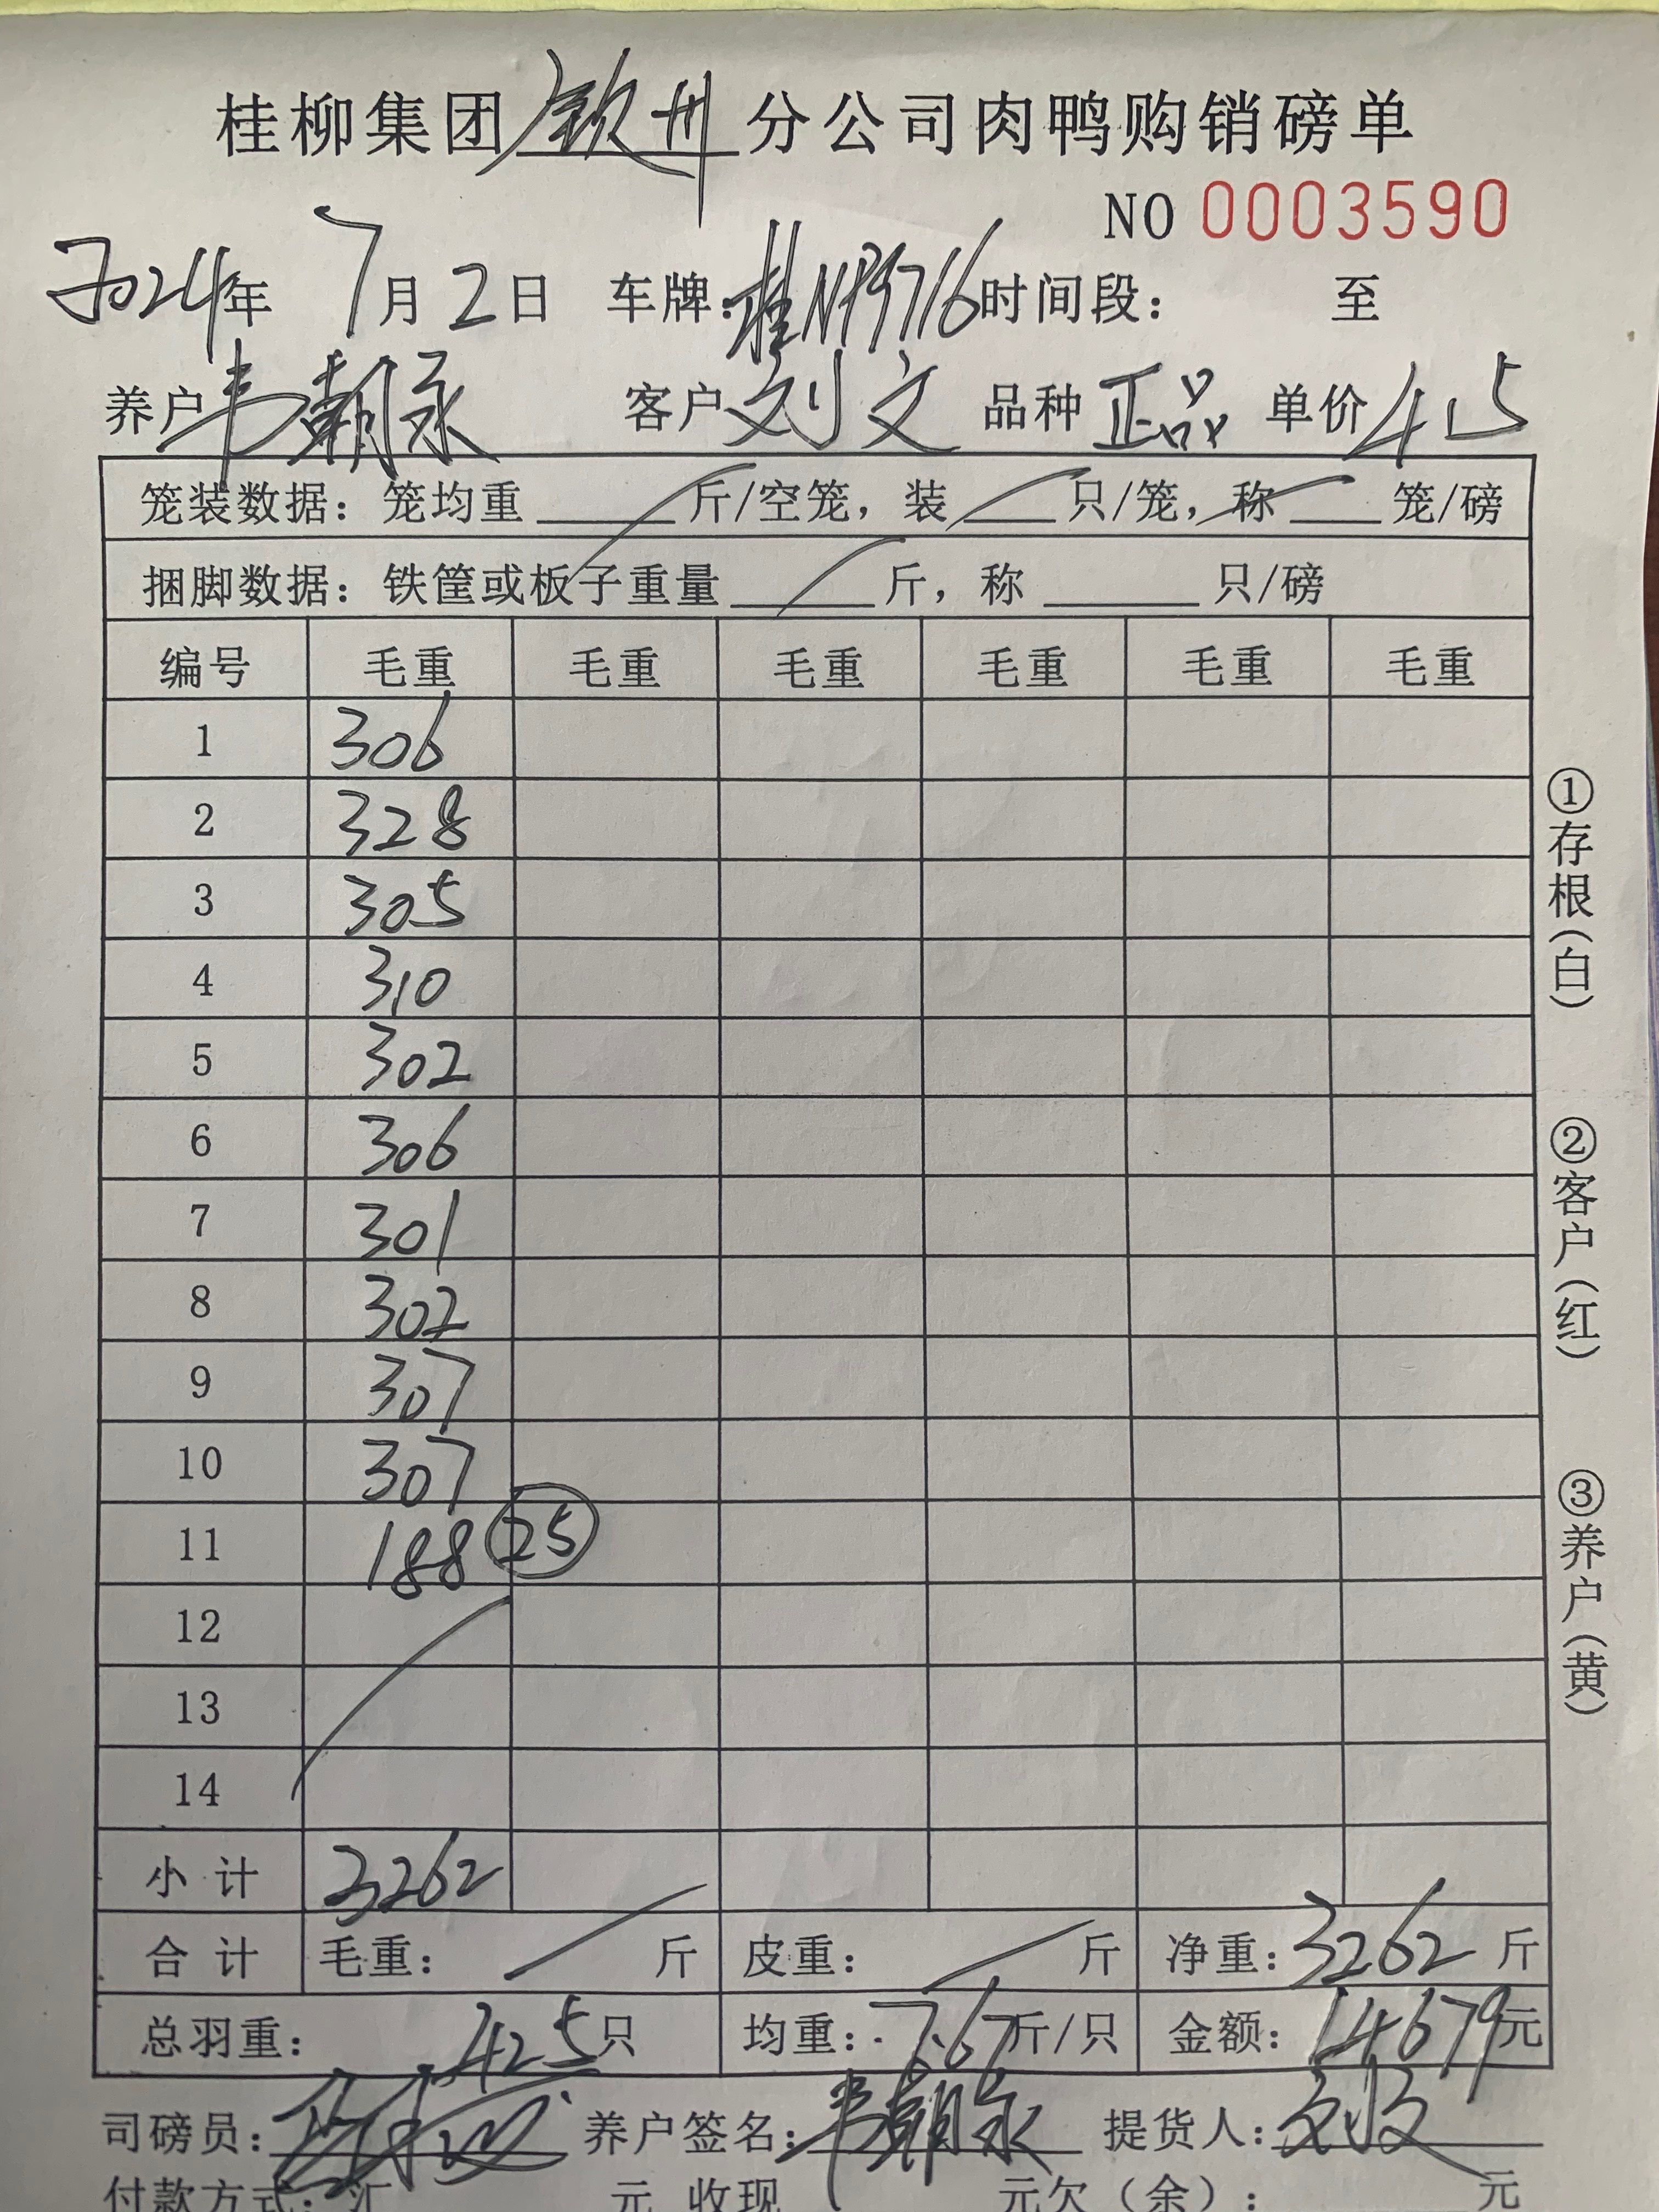 桂柳集团钦州分公司肉鸭购销磅单
NO 0003590
2024年 7月2日 车牌:桂NP9716 时间段: 至
养户韦朝永 客户刘文 品种正品 单价4.5
笼装数据: 笼均重 斤/空笼, 装 只/笼, 称 笼/磅
捆脚数据: 铁筐或板子重量 斤, 称 只/磅
编号 毛重 毛重 毛重 毛重 毛重 毛重
1 306
2 328
3 305
4 310
5 302
6 306
7 301
8 302
9 307
10 307
11 188 25
12
13
14
小计 3262
合计 毛重: 斤 皮重: 斤 净重:3262斤
总羽重: 425只 均重:7.67斤/只 金额:14679元
司磅员: 养户签名:韦朝永 提货人:刘文
付款方式:汇 元 收现 元欠(余): 元
①存根(白)
②客户(红)
③养户(黄)